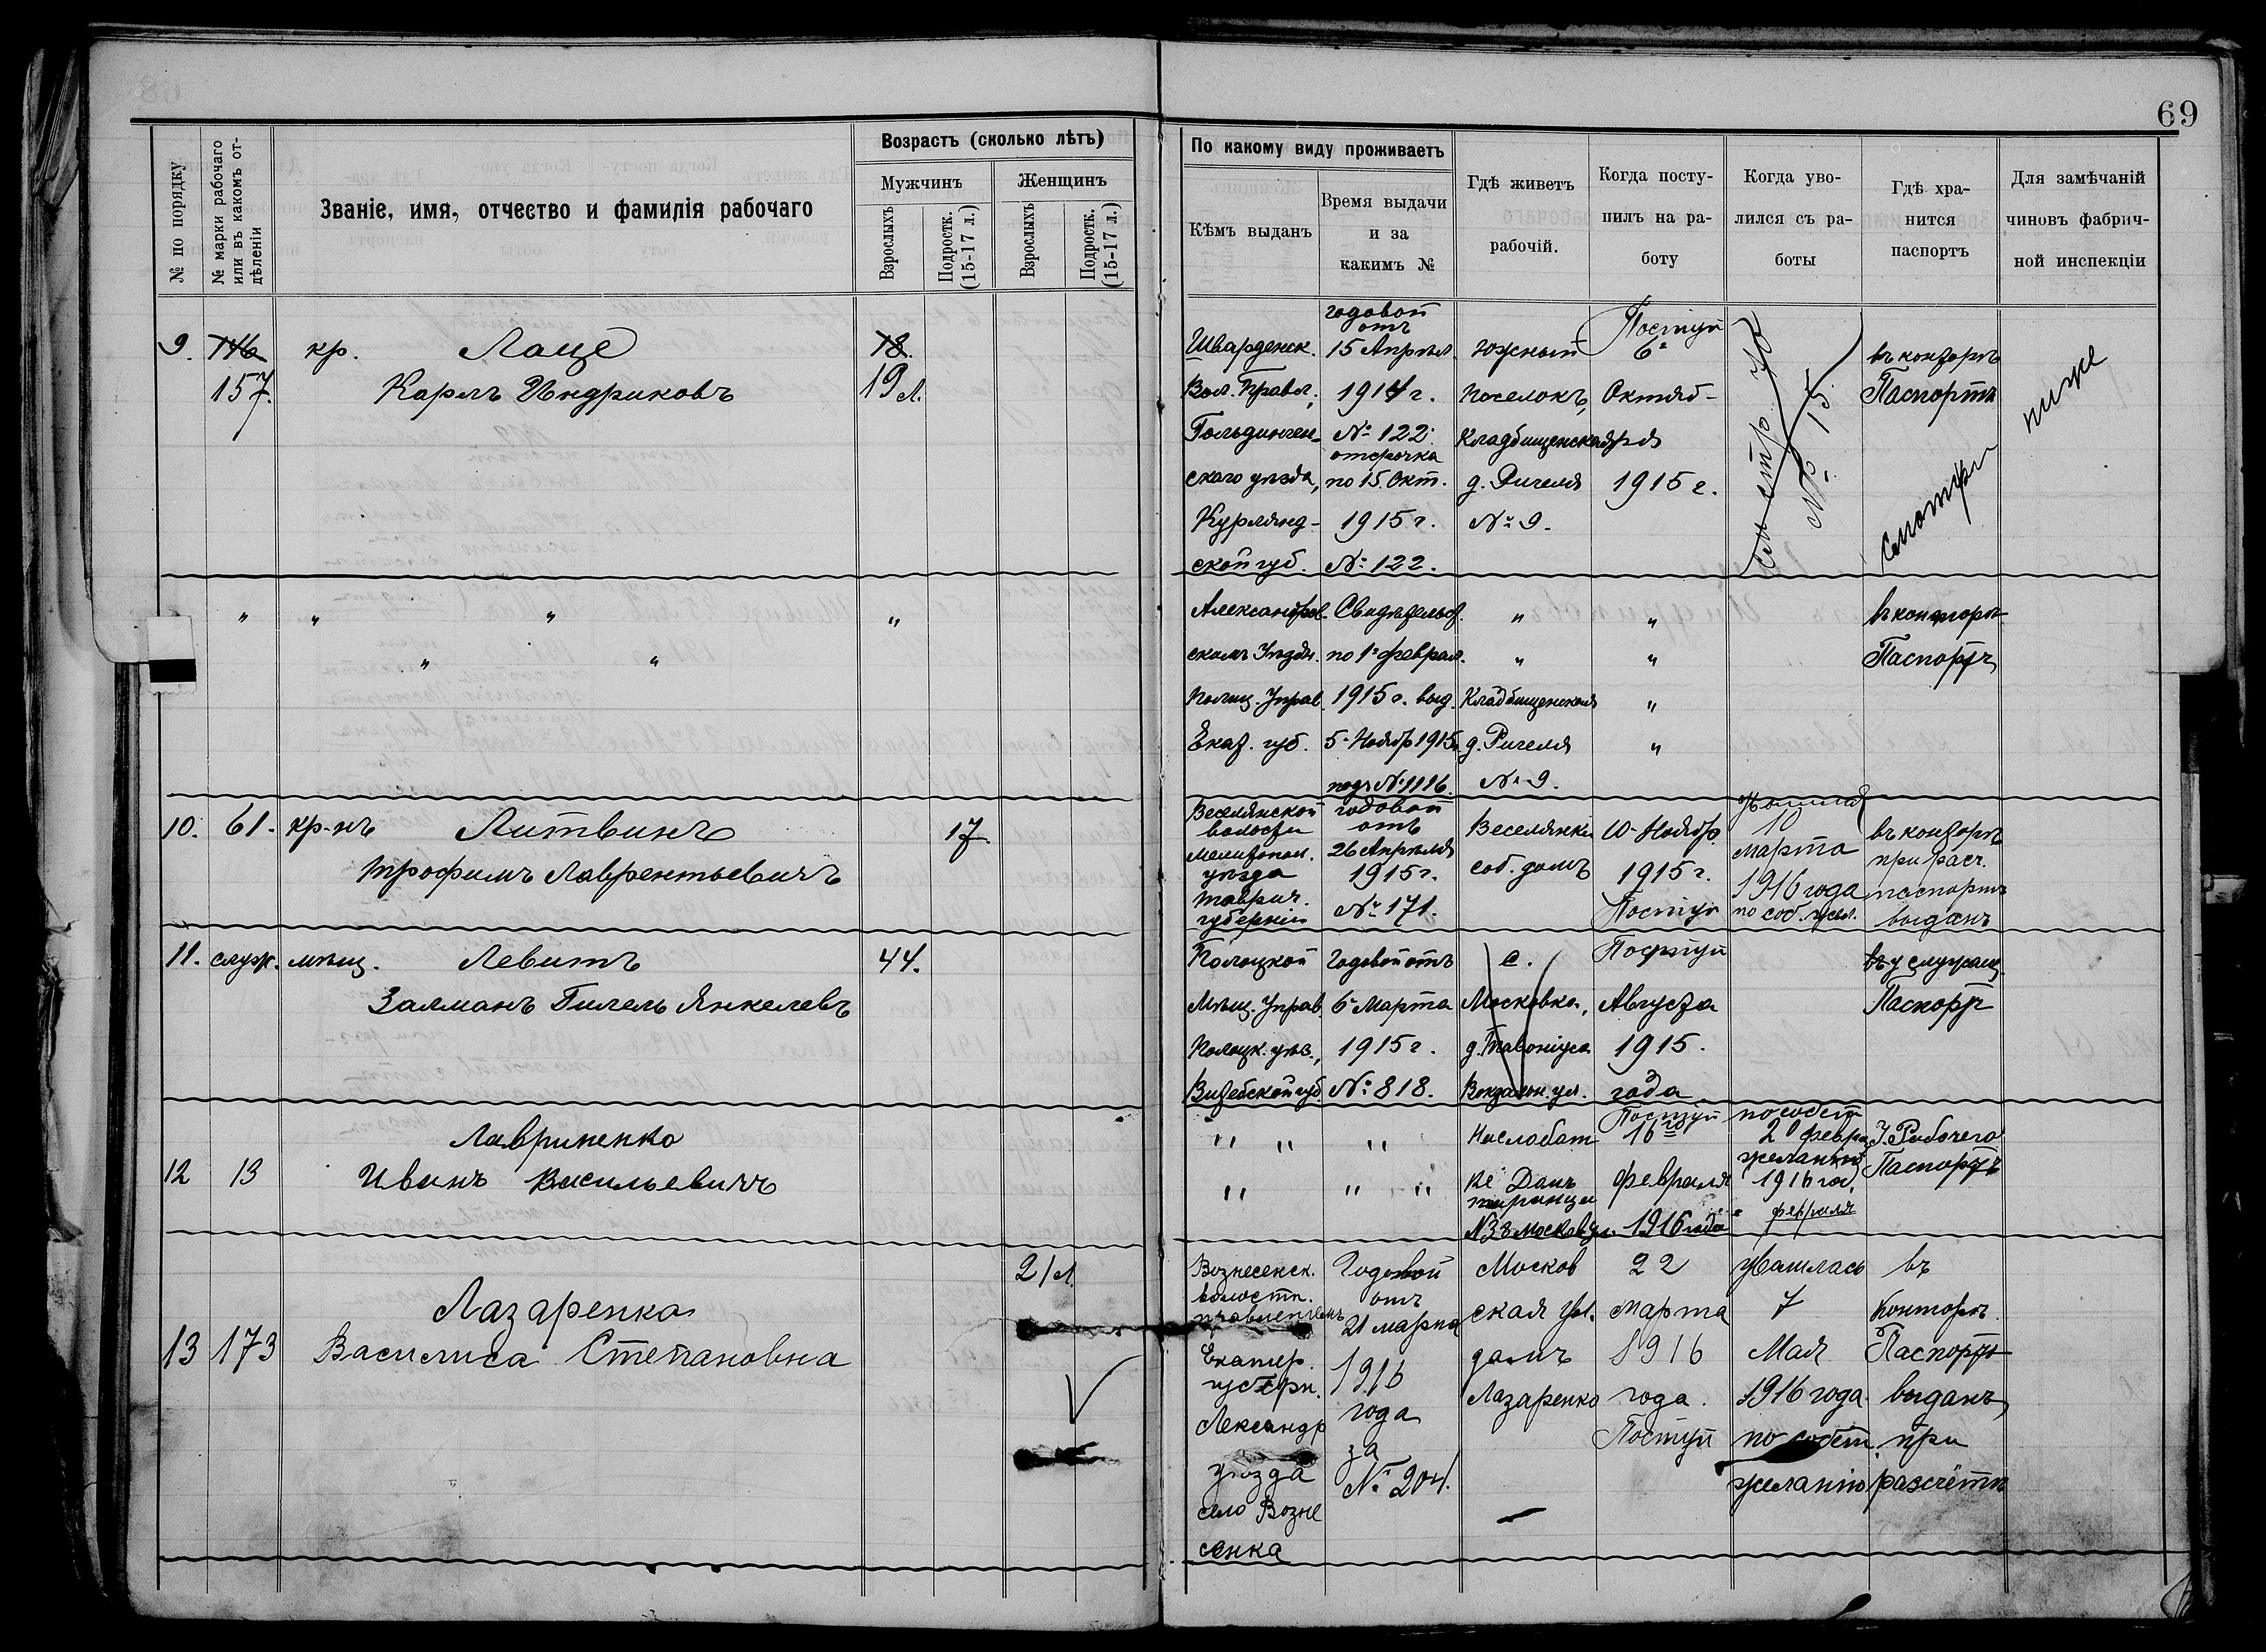 69
№ по порядку
№ марки рабочаго или въ какомъ отдѣленіи
Званіе, имя, отчество и фамилія рабочаго
Возрастъ (сколько лѣтъ)
Мужчинъ
Женщинъ
Взрослыхъ
Подростк. (15-17 л.)
Взрослыхъ
Подростк. (15-17 л.)
По какому виду проживаетъ
Кѣмъ выданъ
Время выдачи
и за
какимъ №
Гдѣ живетъ
рабочій.
Когда посту-
пилъ на ра-
боту
Когда уво-
лился съ ра-
боты
Гдѣ хра-
нится
паспортъ
Для замѣчаній
чиновъ фабрич-
ной инспекціи
9.
146
157.
кр. Лаце
Карлъ Индриковъ
18.
19 л.
Шварденск.
Вол. Правл.,
Гольдинген-
скаго уѣзда,
Курлянд-
ской губ.
годовой
отъ
15 Апрѣл.
1914 г.
№ 122.
отсрочка
по 15. Окт.
1915 г.
№ 122.
Южный
поселокъ,
Кладбищенская
д. Ригеля
№ 9.
Поступ
6-
Октяб-
ря
1915 г.
см стр
№ 15.
въ конторѣ
Паспортъ
смотри
ниже
" " " "
" "
Александров-
скимъ Уѣздн.
Полиц. Управ.
Екат. губ.
Свидѣтельст.
по 1е феврал.
1915 г. выд.
5- Ноябр 1915
подъ № 1116.
"
"
Кладбищенская
д. Ригеля
№ 9.
"
"
"
"
въ конторѣ
Паспортъ
10. 61. кр-нъ Литвинъ
Трофимъ Лаврентьевичъ
17
Веселянской
волости
Мелитопол.
уѣзда
Таврич.
губерніи
годовой
отъ
26 Апрѣля
1915 г.
№ 171.
Веселянки
соб. домъ
10- Ноябр.
1915 г.
Поступ
10
марта
1916 года
по соб. жел.
въ конторѣ
при расч.
паспортъ
выданъ
11. служ. мѣщ. Левитъ
Залманъ Гилель Янкелевъ
44.
Полоцкой
Мѣщ. Управ.
Полоцк. уѣз.,
Витебской губ.
Годовой отъ
6- Марта
1915 г.
№ 818.
с.
Московка,
Вокзальн. ул.
Поступ
Августа
1915.
года
въ у служащ.
Паспортъ
12 13
Лавриненко
Иванъ Васильевичъ
" " "
" " "
№38 Москов ул.
Поступ
16го
февраля
1916 года
по собст
2 0 февр
желанію
1916 год
февраля
У. Рабочего
Паспортъ
13 173
Лазаренко
Василиса Степановна
21 л.
Вознесенск.
волостн.
правленіемъ
Екатер.
губерн.
Александр
уѣзда
село Возне
сенка
Годовой
отъ
21 марта
1916
года
за
№ 204.
Москов
ская ул.
домъ
Лазаренко
22
марта
1916
года.
Поступ
уволилась
7
Мая
1916 года
по собст.
желанію
въ
Конторѣ.
Паспортъ
выданъ
при
разсчётѣ